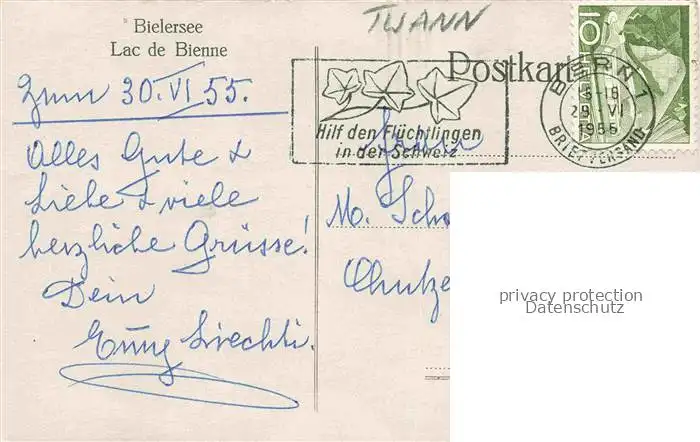 Bielersee
Lac de Bienne
TWANN
Postkarte
10
BERN 1
-18
29. VI
1955
BRIEFVERSAND
Hilf den Flüchtlingen
in der Schweiz
Zum 30. VI 55.
Alles Gute &
Liebe & viele
herzliche Grüsse!
Dein
Liechti.
Frau
M. Sch
Chutze
privacy protection
Datenschutz